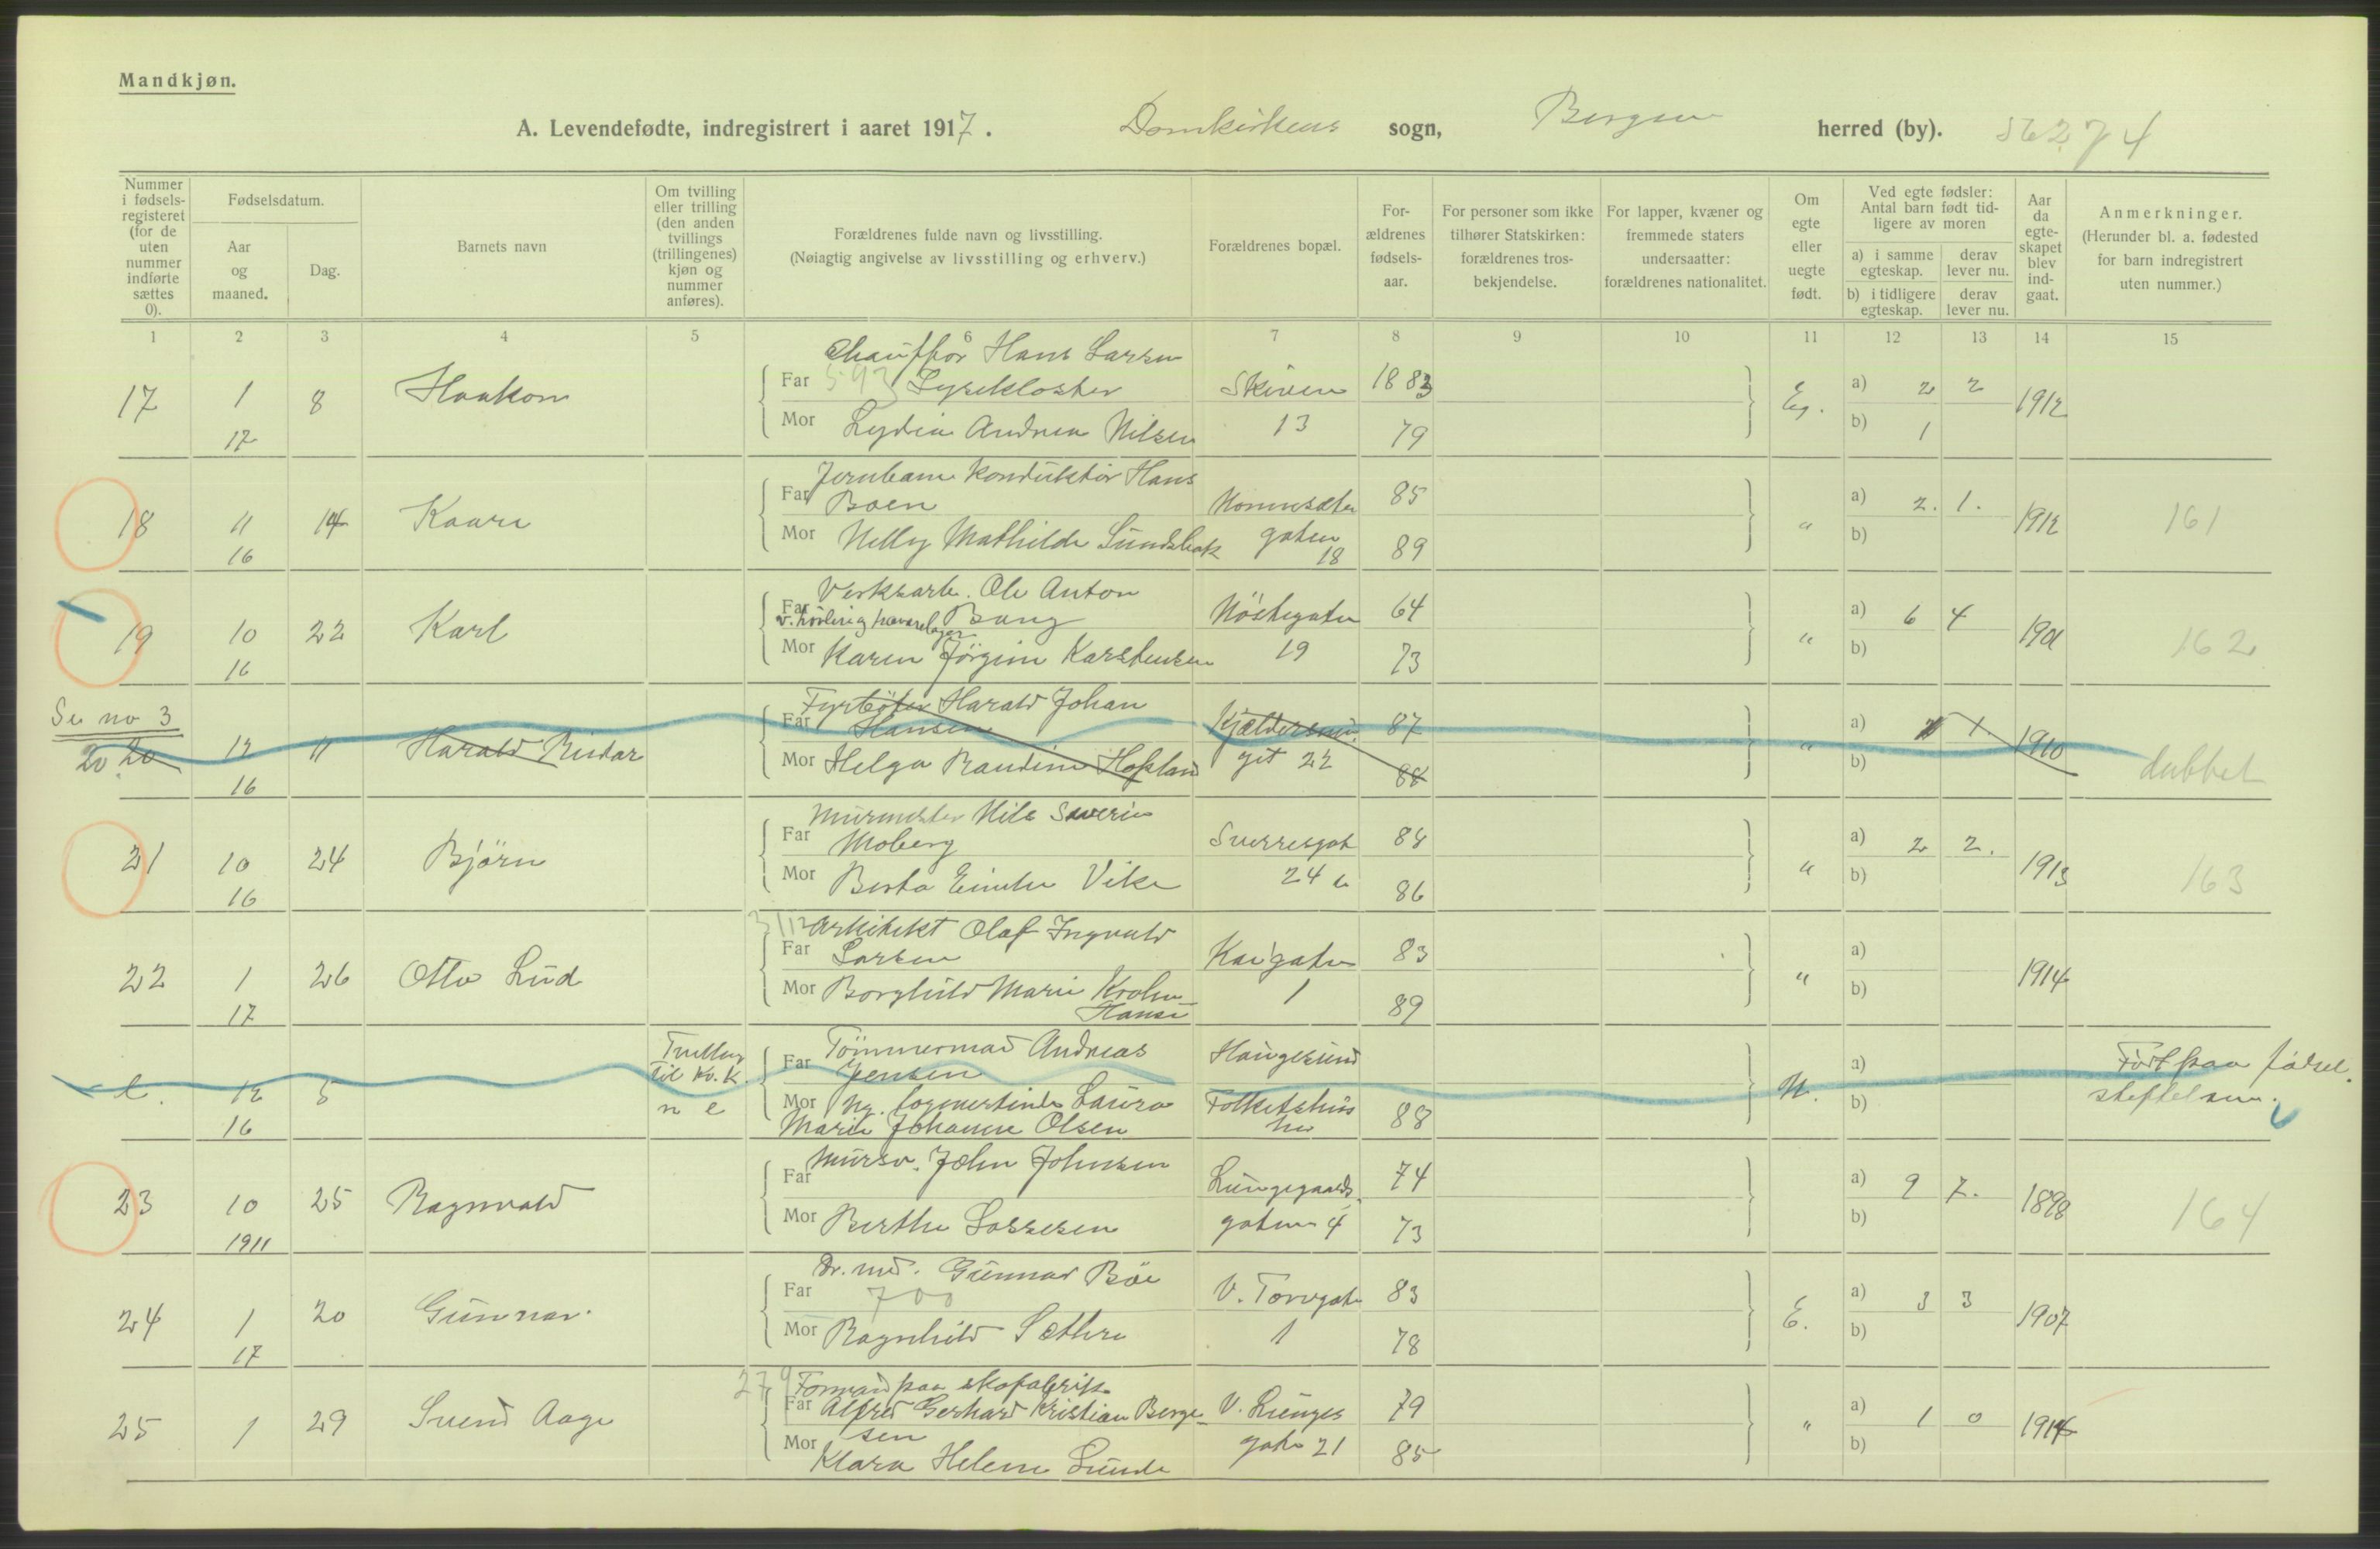 Mandkjøn.
A. Levendefødte, indregistrert i aaret 1917. Domkirkens sogn, Bergen herred (by). 56274
Nummer i fødsels-registeret (for de uten nummer indførte sættes 0).
Fødselsdatum.
Aar og maaned.
Dag.
Barnets navn
Om tvilling eller trilling (den anden tvillings (trillingenes) kjøn og nummer anføres).
Forældrenes fulde navn og livsstilling.
(Nøiagtig angivelse av livsstilling og erhverv.)
Forældrenes bopæl.
For-ældrenes fødsels-aar.
For personer som ikke tilhører Statskirken: forældrenes tros-bekjendelse.
For lapper, kvæner og fremmede staters undersaatter: forældrenes nationalitet.
Om egte eller uegte født.
Ved egte fødsler: Antal barn født tid-ligere av moren
a) i samme egteskap. derav lever nu.
b) i tidligere egteskap. derav lever nu.
Aar da egte-skapet blev ind-gaat.
Anmerkninger.
(Herunder bl. a. fødested for barn indregistrert uten nummer.)
1 2 3 4 5 6 7 8 9 10 11 12 13 14 15
Chauffør Hans Larsen
17 1 8 Haakon Far 593 Lysekloster Skiven 1883 Eg. a) 2 2 1912
17 Mor Lydia Andrea Nilsen 13 79 b) 1
Jernbane konduktør Hans
18 11 14 Kaare Far Boen Nonnesæter 85 " a) 2. 1. 1912 161
16 Mor Nelly Mathilde Sundsbak gaten 18 89 b)
Verksarb. Ole Anton
19 10 22 Karl Far Bang Nöstegaten 64 " a) 6 4 1901 162
16 Mor Karen Jörgine Karstensen 19 73 b)
Se no 3
Fyrböter Harald Johan
20 20 12 11 Harald Reidar Far Hansen 87 " a) 1 1910 dubbel
16 Mor Helga Randine Hopland git 22 88 b)
Murmester Nils Severin
21 10 24 Björn Far Moberg Sverresgat 88 " a) 2 2. 1913 163
16 Mor Berta Vike 24 b 86 b)
Arkitekt Olaf Ingvald
22 1 26 Otto Lud Far Larsen Kaigaten 83 " a) 1914
17 Mor Borghild Marie Krohn- 1 89 b)
Hansen
Tvilling Tömmermand Andreas Haugesund
til Kv.K. Far Jensen a) Fört paa födsel.
12 5 n e Mor Laura Folkets hus U. b)
16 Marie Johanne Olsen 88
Mursv. John Johnsen
23 10 25 Ragnvald Far Lungegaards- 74 a) 9 7. 1898 164
1911 Mor Berthe Lassesen gaten 4 73 b)
Dr. med. Gunnar Böe
24 1 20 Gunnar Far 700 V. Torvgate 83 E. a) 3 3 1907
17 Mor Ragnhild Sæthre 1 78 b)
279 Formand paa skofabrikk
25 1 29 Svend Aage Far Alfred Gerhard Kristian Berge- V. Lunges 79 " a) 1 0 1914
sen
Mor Klara Helene Lunde gate 21 85 b)